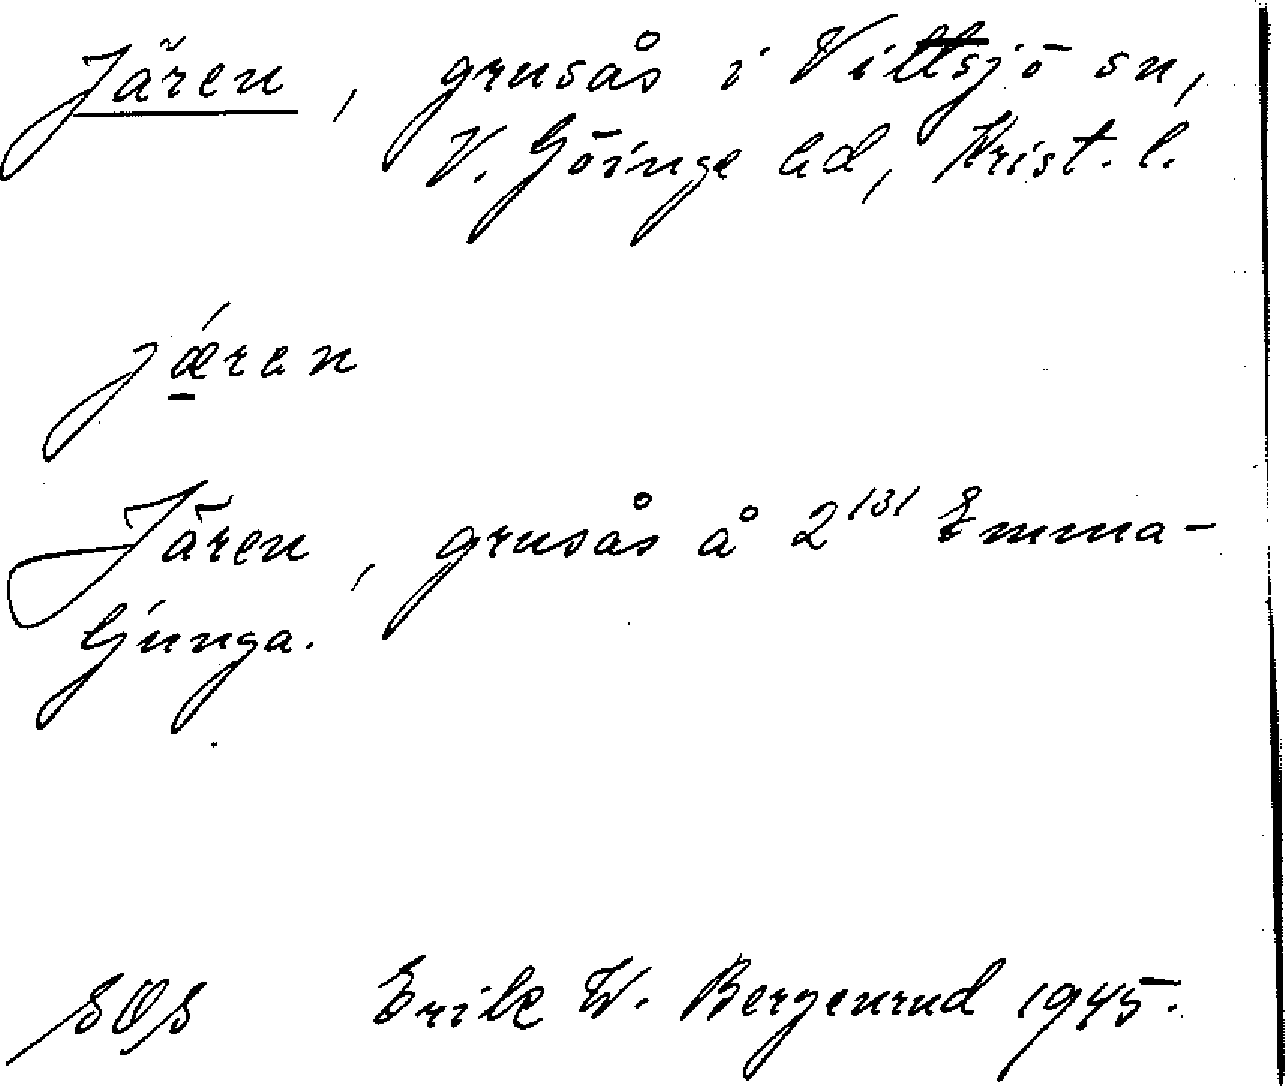 Jären, grusås i Vittsjö sn,
V. Göinge hd, Krist. l.
jǽren
Jären, grusås å 2¹³¹ Emma-
ljunga.
SOS Erik W. Bergenrud 1945.